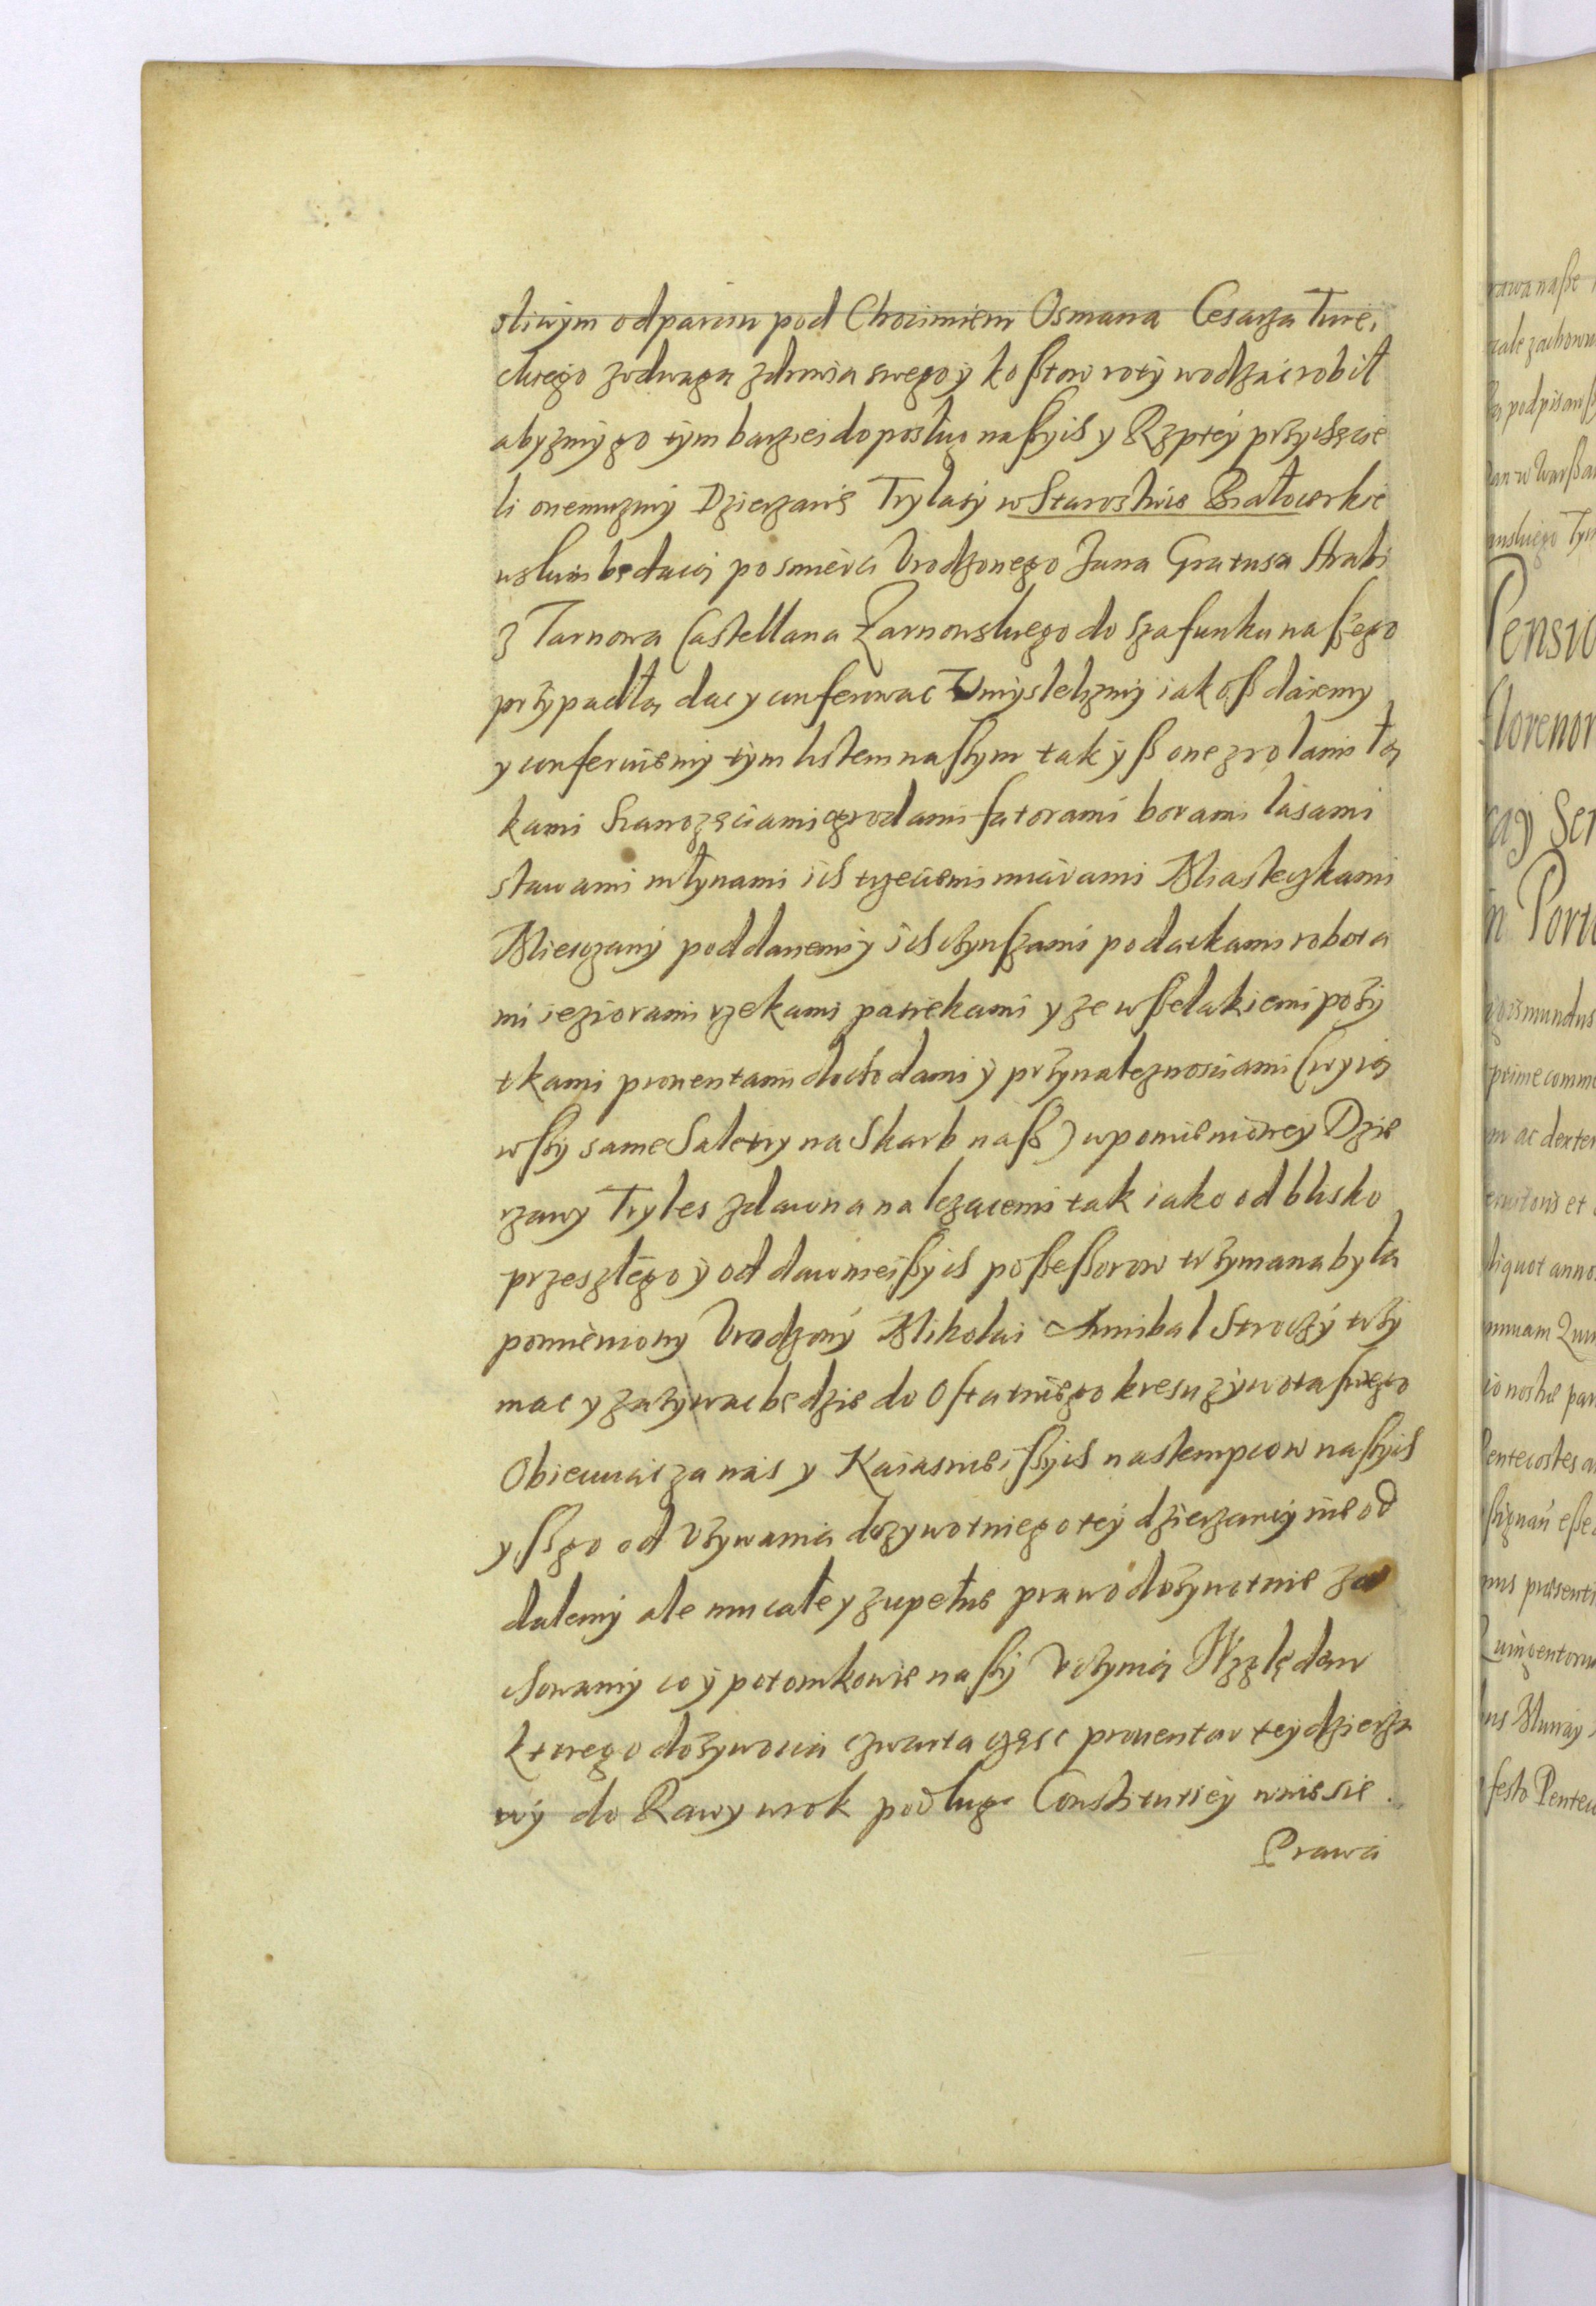 sliwym odparciu pod Chocimiem Osmana Cesarza Ture,
ckiego zodwagą zdrowia swego y kosztow roty wodząc robił
abyzmy go tym barziei do posług naszyich y Rzptey przychęcie
li onemuzmy Dzierzawę Trylasy w Starostwie Białocerkie
wskim będącą po smierci Vrodzonego Jana Gratusa Hrabi
z Tarnowa Castellana Zarnowskiego do szafunku naszego
przypadłą dac y conferowac Vmyslelizmy iakosz daiemy
y conferuiemy tym listem naszym tak ysz one z rolami łą
kami Sianozęciami ogrodami futorami borami lasami
stawami młynami ich trzeciemi miarami Miasteczkami
Mieszczany poddanemi y ich czynszami podatkami robota
mi ieziorami rzekami pasiekami y ze wszelakiemi pozy
tkami prouentami dochodami y przynaleznosciami (wyią
wszy same Saletry na Skarb nasz) wpomienioney Dzie
rzawy Tryles zdawna nalezącemi tak iako od blisko
przeszłego y od dawnieiszyich possessorow trzymana była
pomieniony Vrodzony Mikolai Annibal Stroczy trzy
mac y zazywac będzie do ostatniego kresu zywota swego
Obiecuiąc za nas y Naiasnieiszyich nastempcow naszyich
ysz go od Vzywania dozywotniego tey dzierzawy nie od
dalemy ale mu całe y zupełne prawo dozywotnie za
chowamy co y potomkowie naszy Vczynią Względem
ktorego dozywocia czwarta częsc prouentow tey dzierza
wy do Rawy wrok podług Constitutiey wniesie.
Prawa
rawa nasze
cale zachowu
podpisansz
Dan w Warsza
Pensio
florenor
Ser
in Porto
gismundus
prime comm
m ac dexter
et
liquot anno
nnuam
io nostre
Pentecostes a
essze
nus præsenti
Quingentoru
ius
festo Pentec